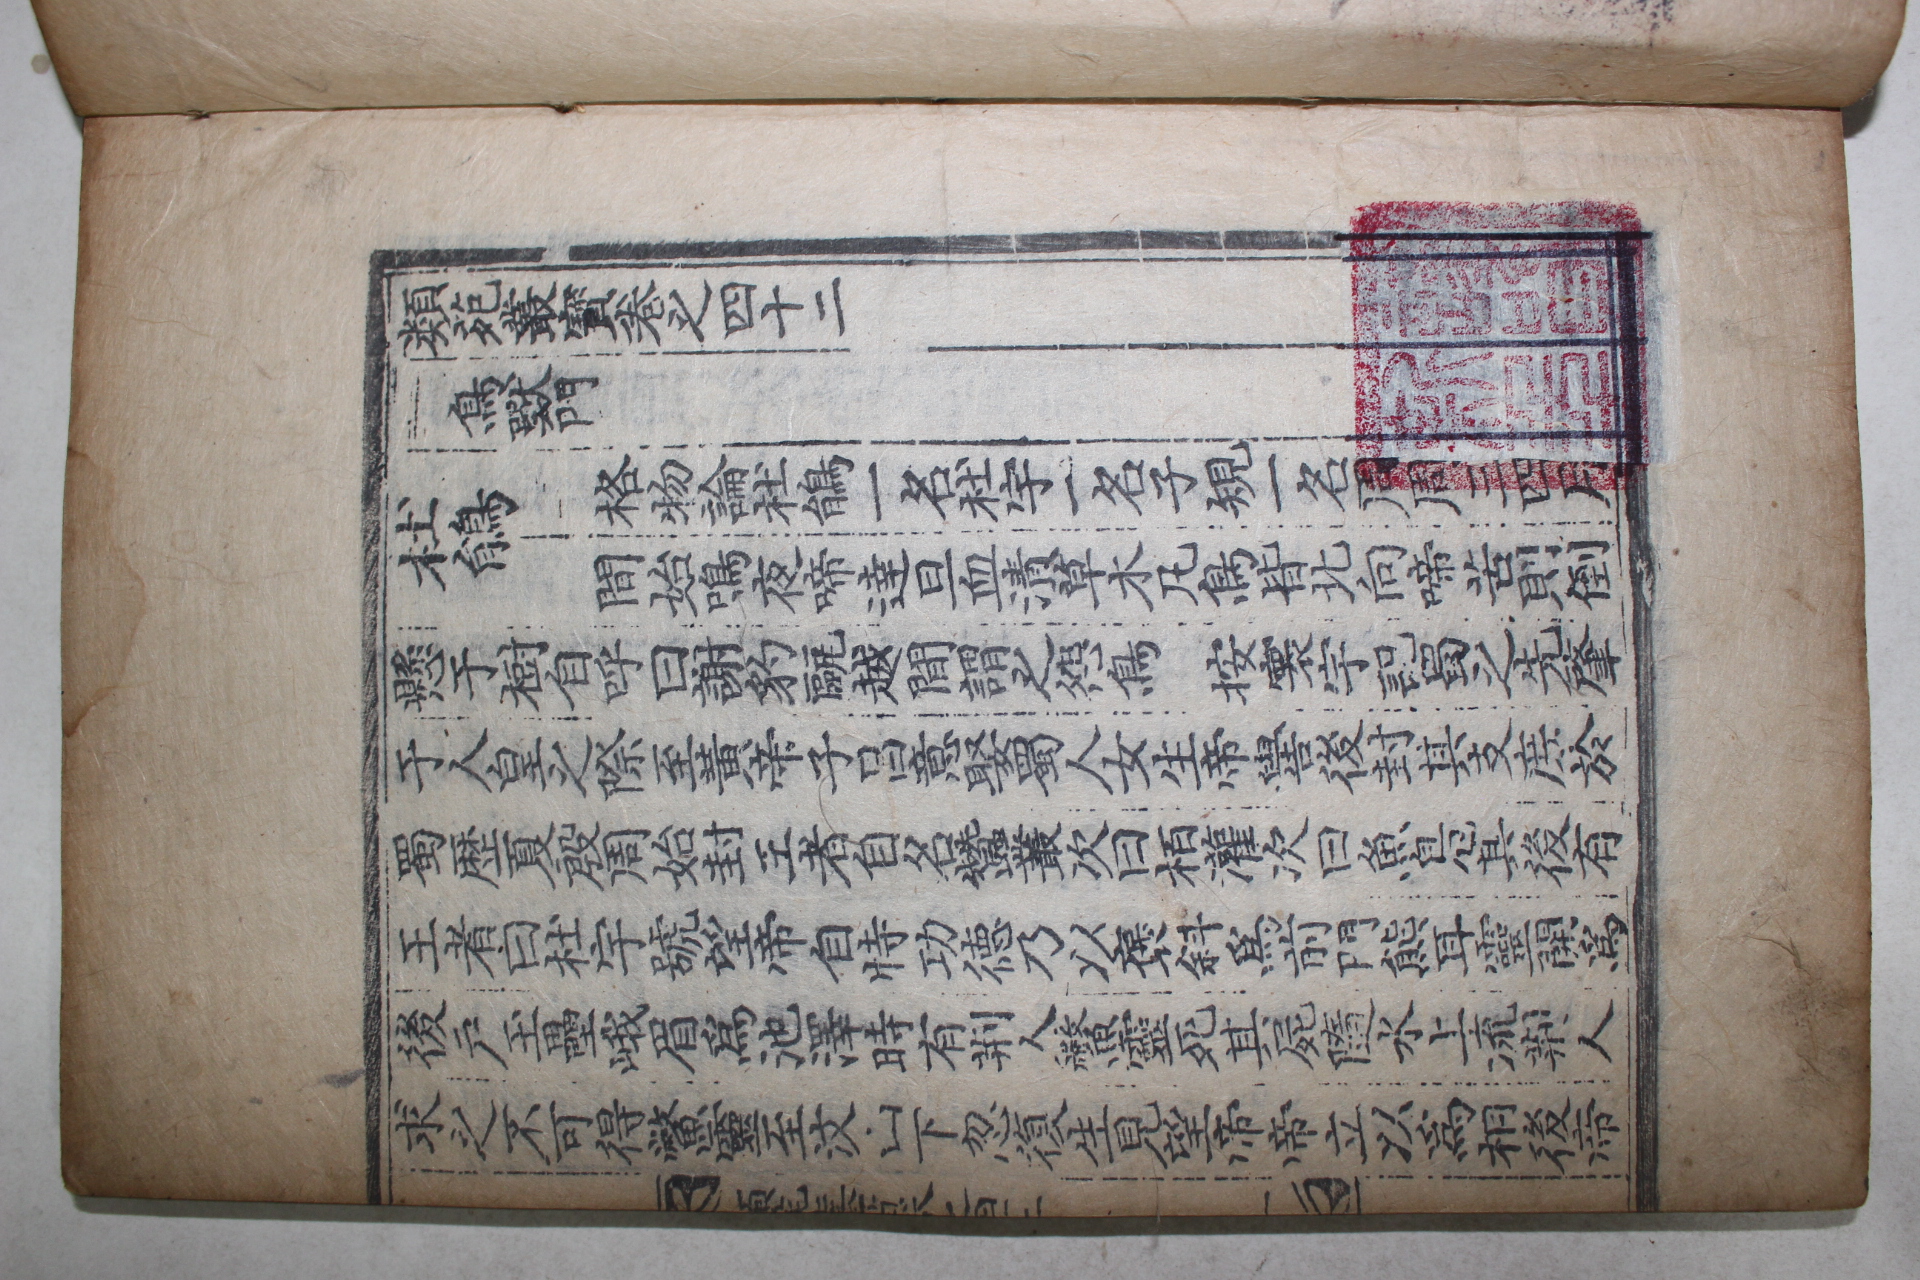 類苑叢寶卷之四十二
鳥獸門
杜鵑
格物論杜鵑一名杜宇一名子規一名周周三四月
間始鳴夜啼達旦血清草木凡鳥皆北向啼苦則倒
懸于樹自呼曰謝豹甌越間謂之怨鳥 按寰宇記蜀之先肇
于人皇之際至黃帝子昌意娶蜀人女生帝嚳後封其支庶於
蜀歷夏殷周始封王者自名蠶叢次曰栢灌次曰魚鳧其後有
王者曰杜宇號望帝自恃功德乃以褒斜爲前門熊耳靈關爲
後戶玉壘峨眉爲池澤時有荊人鱉靈死其屍隨水上流荊人
求之不可得鱉靈至汶山下忽復生見望帝帝立以爲相後帝